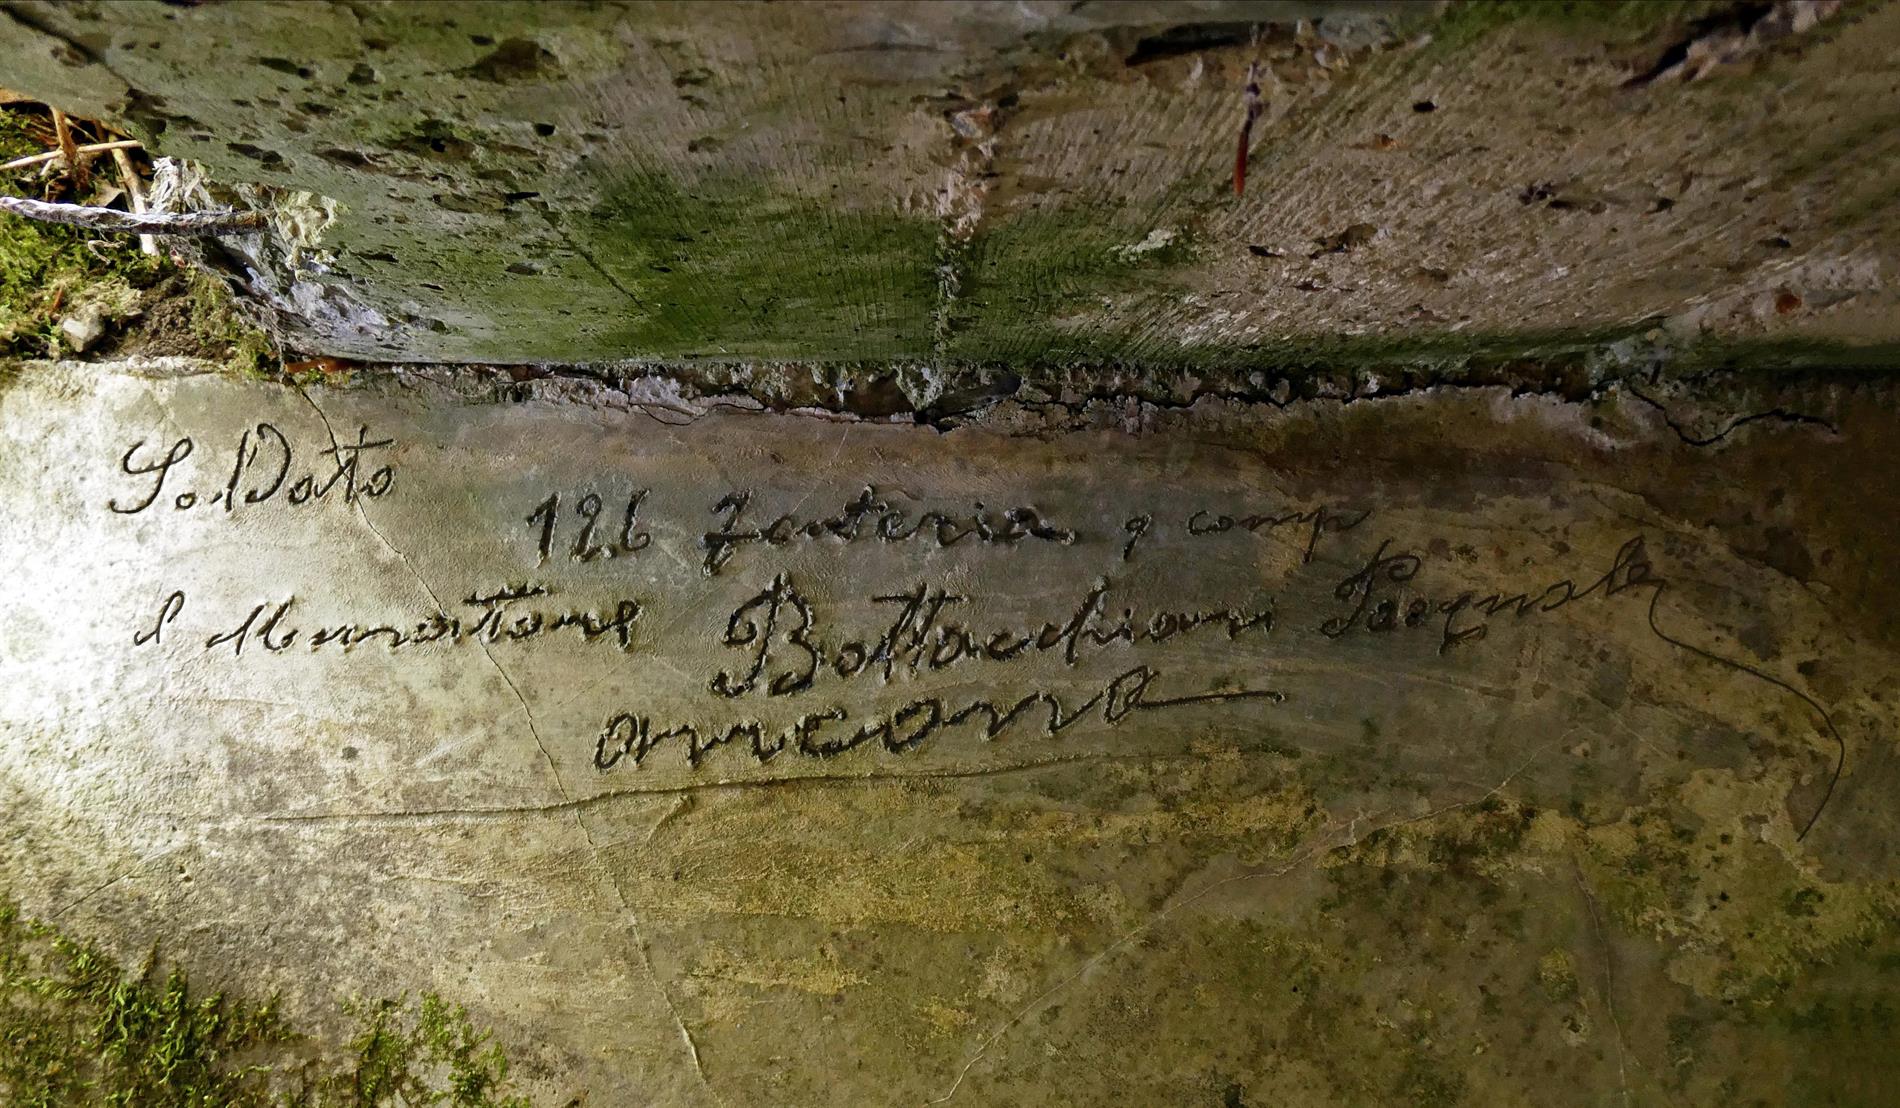 Soldato
126 Fanteria 9 comp
e Muratore Bottacchiari Pasquale
ancona